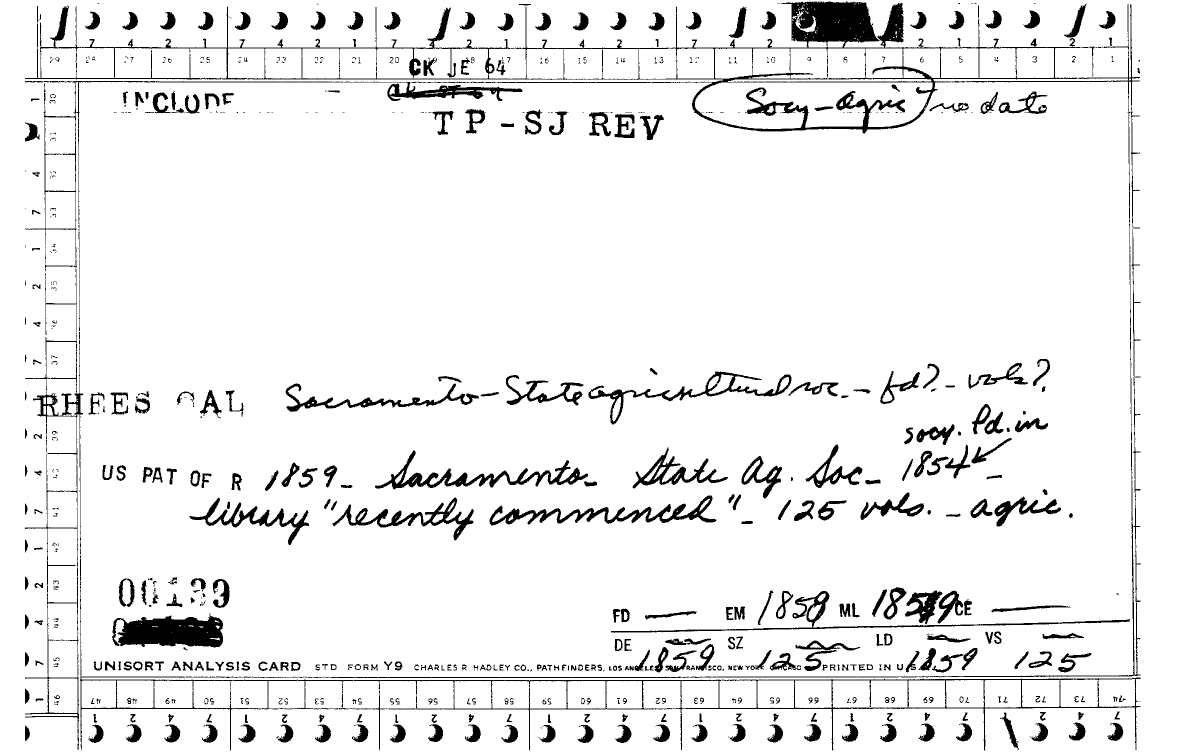 7 4 2 1 7 4 2 1 7 4 2 1 7 4 2 1 7 4 2 1 7 4 2 1 7 4 2 1
29 28 27 26 25 24 23 22 21 20 19 18 17 16 15 14 13 12 11 10 9 8 7 6 5 4 3 2 1
CK JE 64
INCLUDE — Socy-agric no date
TP-SJ REV
RHEES CAL Sacramento-State agricultural soc. - fd? - vols?
socy. fd. in
US PAT OF R 1859 - Sacramento - State Ag. Soc - 1854 -
library "recently commenced" - 125 vols. - agric.
00139
FD — EM 1859 ML 1859 CE —
DE 1859 SZ 125 LD 1859 VS 125
UNISORT ANALYSIS CARD STD FORM Y9 CHARLES R HADLEY CO., PATHFINDERS, LOS ANGELES, SAN FRANCISCO, NEW YORK CHICAGO PRINTED IN U.S.A.
46 47 48 49 50 51 52 53 54 55 56 57 58 59 60 61 62 63 64 65 66 67 68 69 70 71 72 73 74